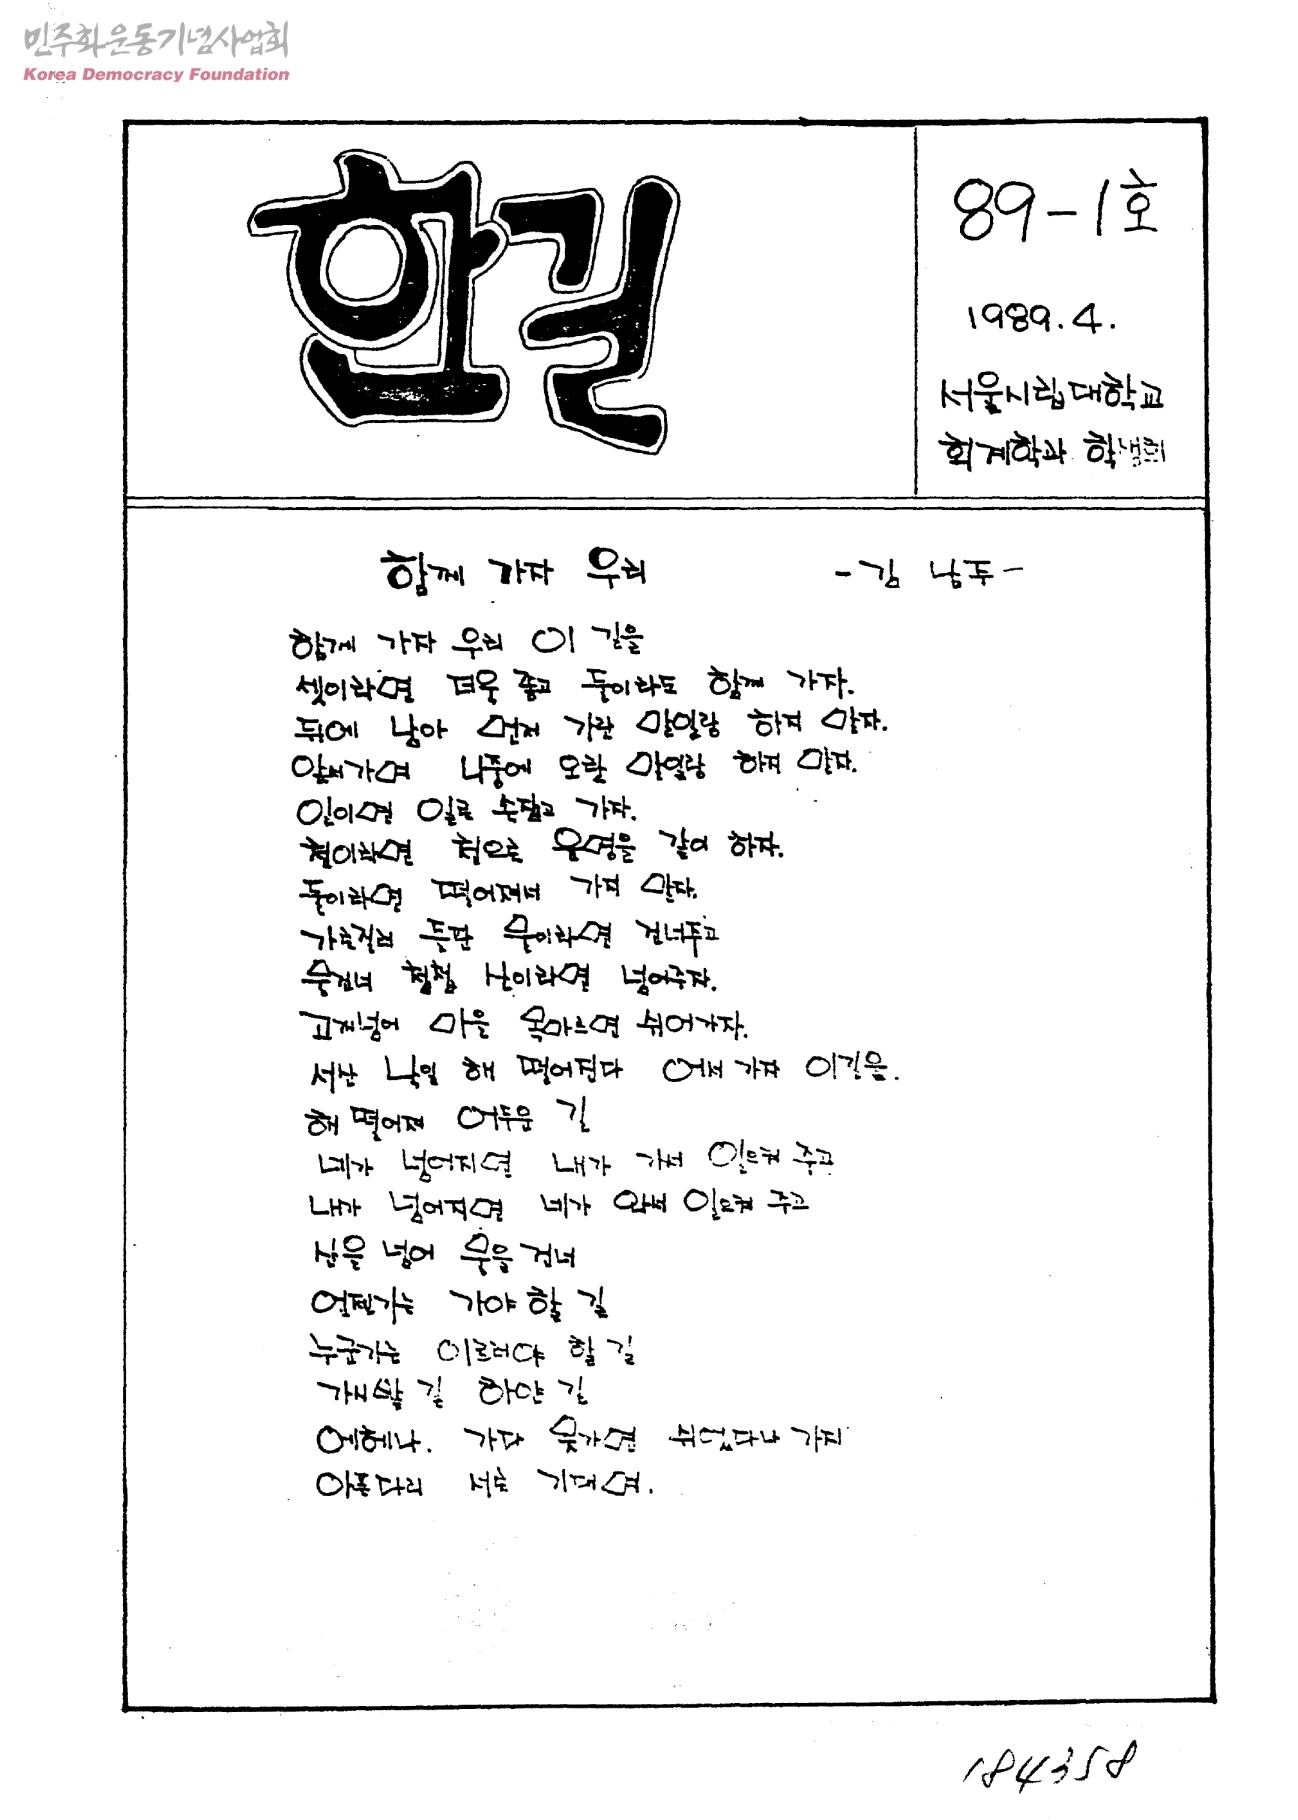 민주화운동기념사업회
Korea Democracy Foundation
한길
89-1호
1989.4.
서울시립대학교
회계학과 학생회
함께 가자 우리 -김 남주-
함께 가자 우리 이 길을
셋이라면 더욱 좋고 둘이라도 함께 가자.
뒤에 남아 먼저 가란 말일랑 하지 말자.
앞서가며 나중에 오란 말일랑 하지 말자.
일이면 일로 손잡고 가자.
천이라면 천으로 운명을 같이 하자.
둘이라면 떨어져서 가지 말자.
가로질러 들판 물이라면 건너주고
물건너 첩첩 산이라면 넘어주자.
고개넘어 마을 목마르면 쉬어가자.
서산 낙일 해 떨어진다 어서 가자 이길을.
해 떨어져 어두운 길
네가 넘어지면 내가 가서 일으켜 주고
내가 넘어지면 네가 와서 일으켜 주고
산을 넘어 물을 건너
언젠가는 가야 할 길
누군가는 이르러야 할 길
가시밭 길 하얀 길
에헤나. 가다 못가면 쉬었다나 가지
아픈다리 서로 기대며.
184358